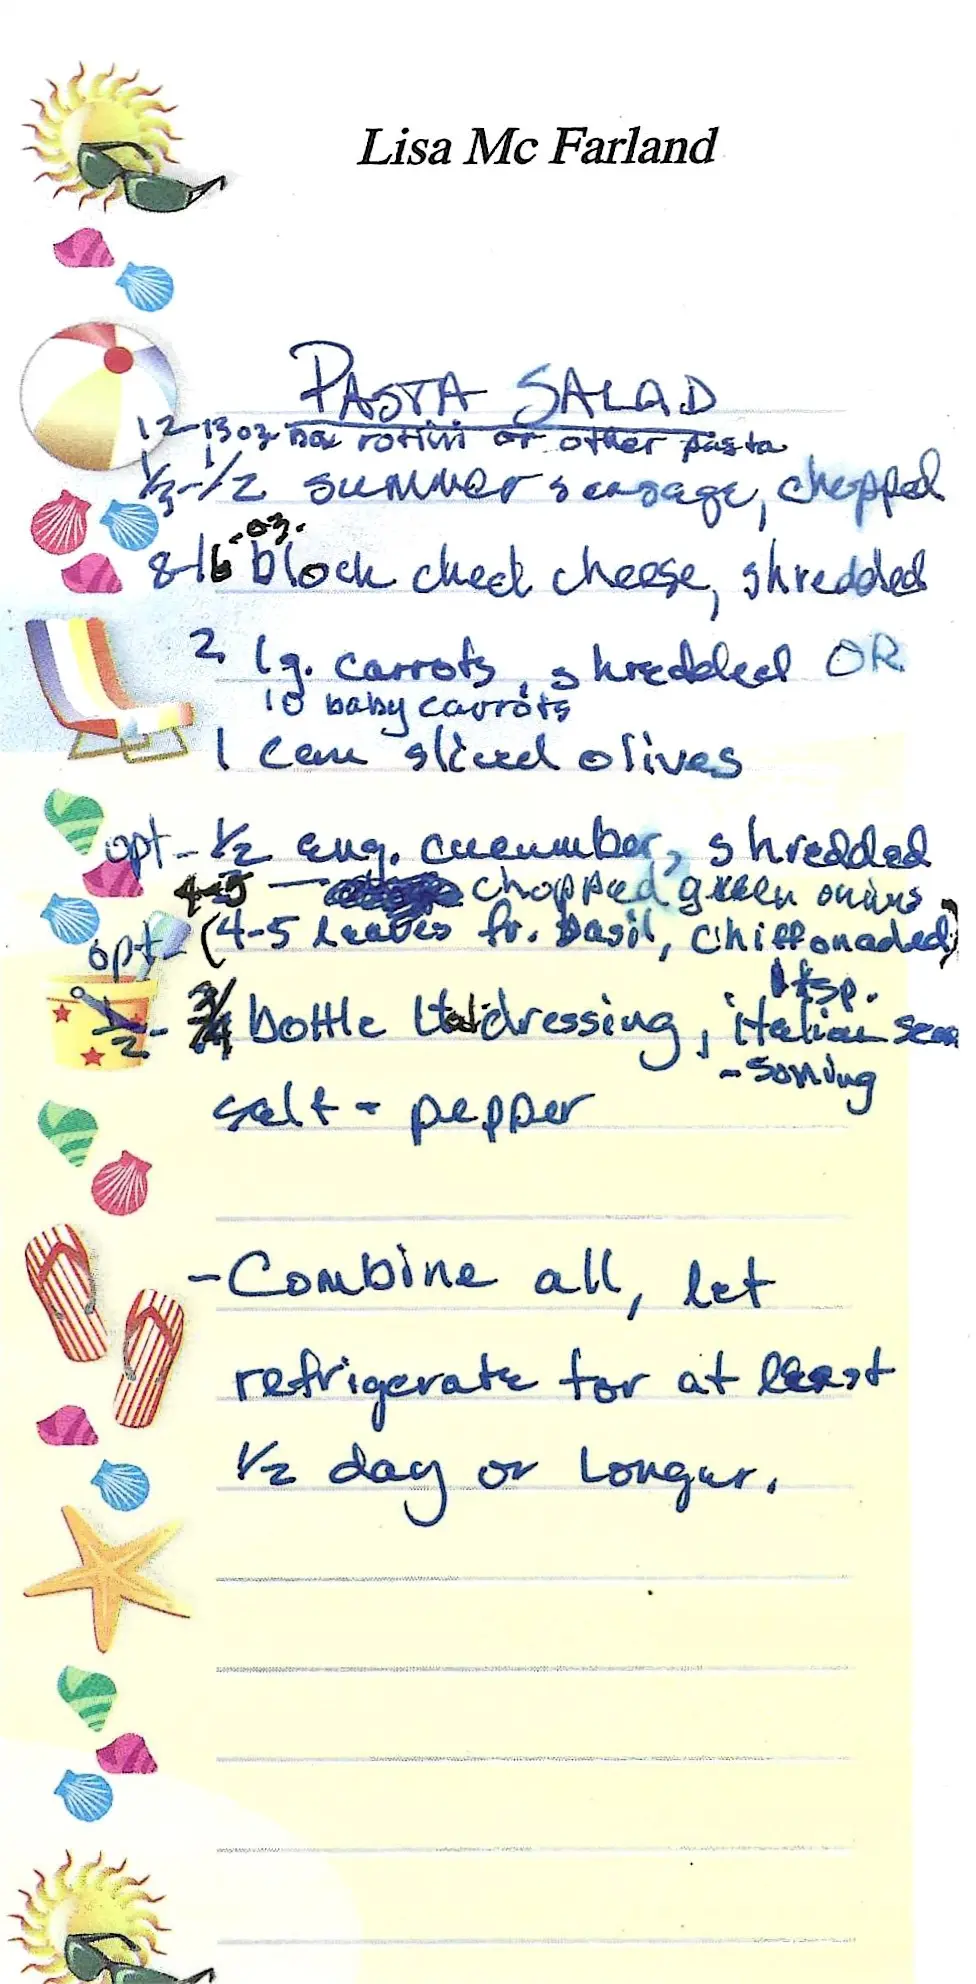 Lisa Mc Farland
PASTA SALAD
12-13 oz box rotini or other pasta
1/3-1/2 summer sausage, chopped
8-16 oz. block ched cheese, shredded
2 lg. carrots, shredded OR
10 baby carrots
1 can sliced olives
opt - 1/2 eng. cucumber, shredded
4-5 — chopped green onions
opt - (4-5 leaves fr. basil, chiffonaded)
1/2 - 3/4 bottle Ital dressing, 1 tsp. italian sea
-soning
salt + pepper
- Combine all, let
refrigerate for at least
1/2 day or longer.